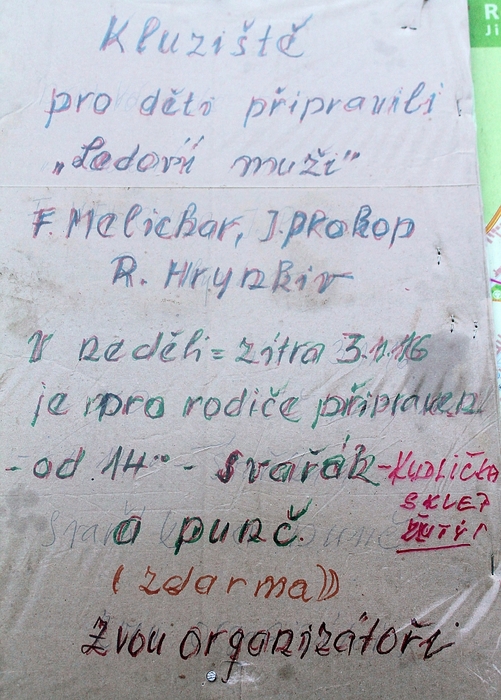 Kluziště
pro děti připravili
„Ledoví muži"
F. Melichar, J. Prokop
R. Hrynkiv
V neděli = zítra 3.1.16
je pro rodiče připraven
- od 14⁰⁰ - Svařák - KUDLIČKA
SKLEP
ŽUTÝ!
a punč.
(zdarma))
Zvou organizátoři
R
Ji